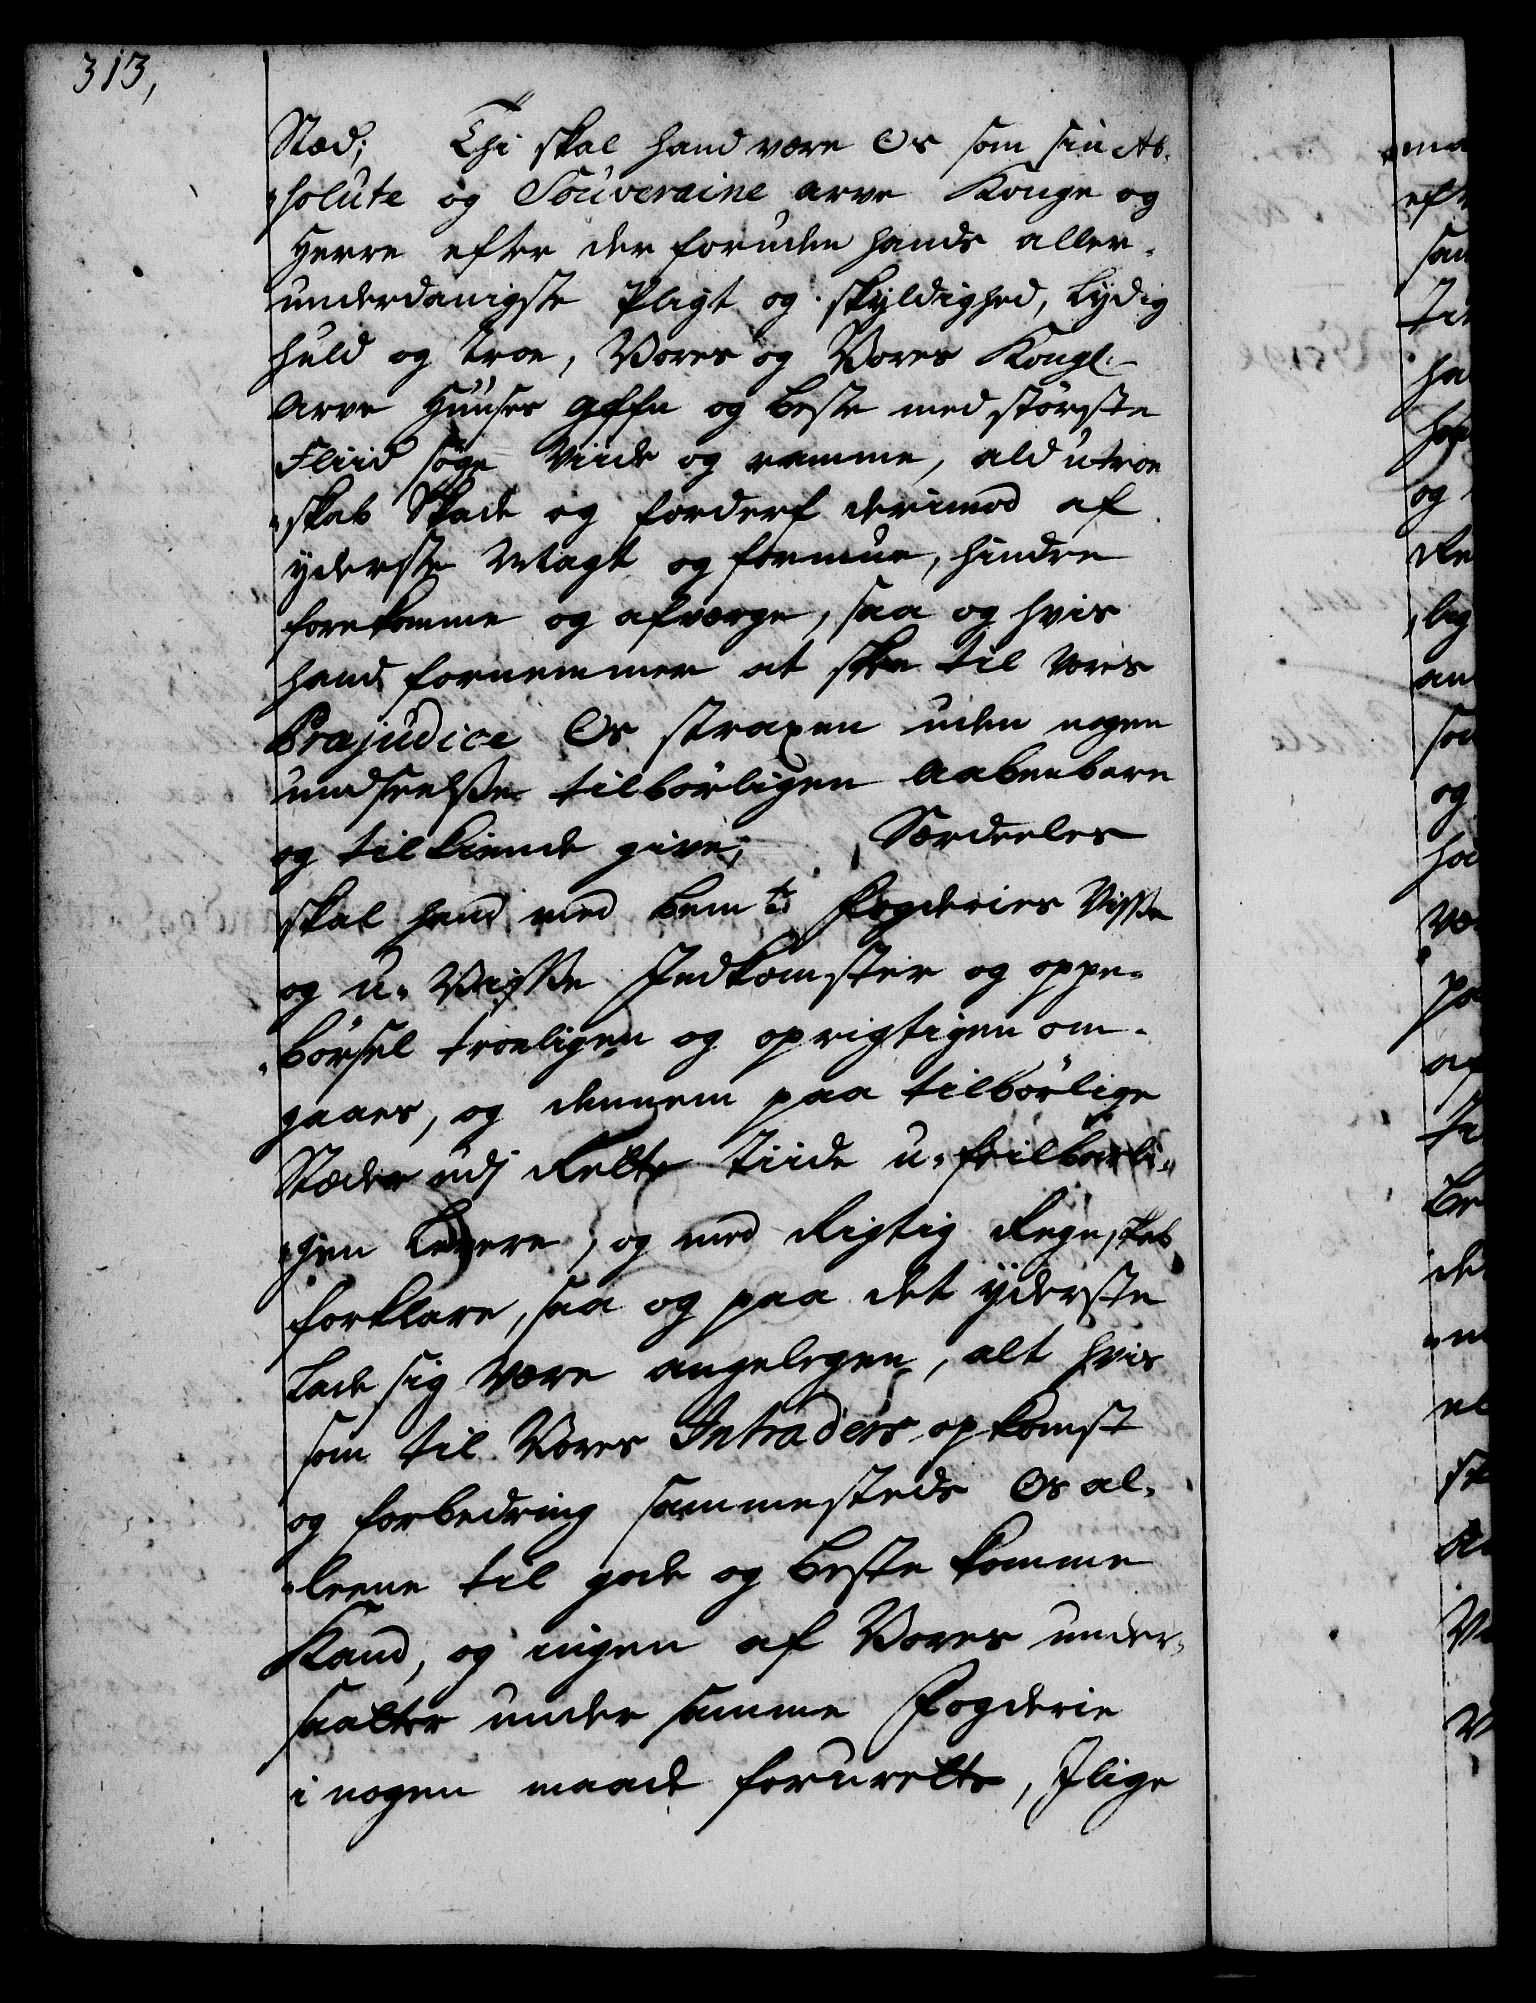 313,
Stæd; Thi skal hand være Os som sin Ab-
solute og Souveraine arve Konge og
Herre efter der foruden hands aller-
underdanigste Pligt og skyldighed, lydig
huld og troe, Vores og Vores Kongl:
Arve Huuses gaffn og beste med störste
Fliid söge viide og ramme, ald utroe
skab Skade og forderf derimod af
yderste Magt og formue, hindre
forekomme og afverge, saa og hvis
hand fornemmer at skee til vores
Præjudice Os straxen uden nogen
undseelsse tilbörligen Aabenbare
og tilkiende give; Særdeeles
skal hand med bemte Fogderies Visse
og u-Visse Indkomster og oppe-
börsel troeligen og oprigtigen om-
gaaes, og dennem paa tilbörlige
Stæder udj Rette tiide u-feilbarli-
gen Levere, og med Rigtig Regnskab
forklare, saa og paa det yderste
Lade sig være angelegen, alt hvis
som til Vores Intraders opkomst
og forbedring sammesteds Os al-
leene til gode og beste komme
Kand, og ingen af Vores under-
saatter under samme Fogderie
i nogen maade forurette, Ilige